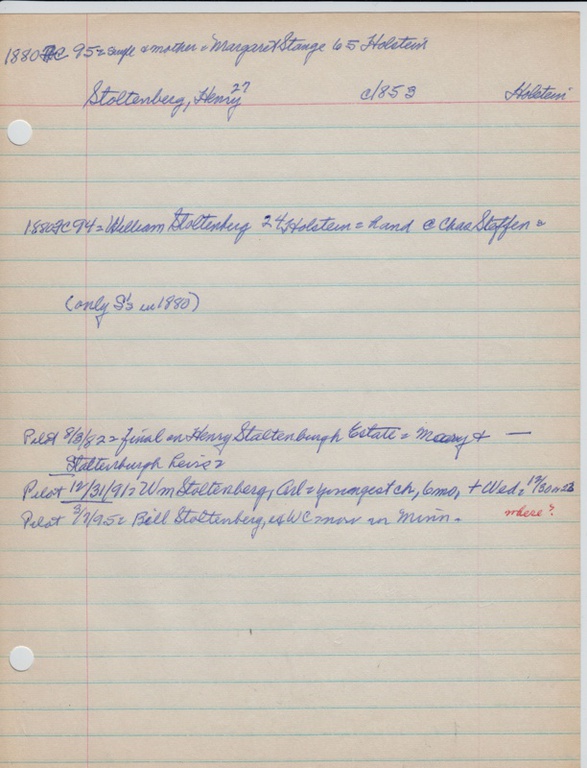 1880 FC 95 = single & mother = Margaret Stange 65 Holstein
Stoltenberg, Henry 27 c1853 Holstein
1880 FC 94 = William Stoltenberg 24 Holstein = hand @ Chas Steffen =
(only S's in 1880)
Pilot 8/3/82 = final on Henry Staltenburgh Estate = & —
Staltenburgh heirs =
Pilot 12/31/91 = Wm Stoltenberg, Arl = youngest ch, 6 mo, + Wed =
Pilot 3/7/95 = Bill Stoltenberg, = now in Minn.
where?